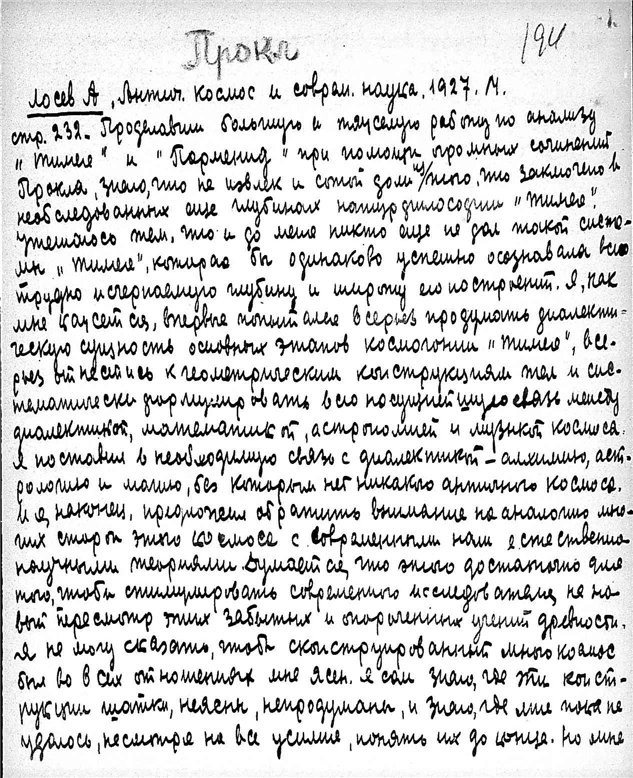 Прокл
194
1.
Лосев А, Антич. космос и соврем. наука, 1927. М.
стр. 232. Проделавши большую и тяжелую работу по анализу
"Тимея" и "Парменид" при помощи огромных сочинений
Прокла, знаю, что не извлек и сотой доли того, что заключено в
необследованных еще глубинах натурфилософии "Тимея".
Утешаюсь тем, что и до меня никто еще не дал такой систе-
мы "Тимея", которая бы одинаково успешно осознавала всю
трудно исчерпаемую глубину и широту его построений. Я, как
мне кажется, впервые попытался всерьез продумать диалекти-
ческую сущность основных этапов космогонии "Тимея", все-
рьез отнестись к геометрическим конструкциям тел и сис-
тематически формулировать всю последнейшую связь между
диалектикой, математикой, астрономией и музыкой космоса.
Я поставил в необходимую связь с диалектикой - алхимию, аст-
рологию и магию, без которых нет никакого античного космоса.
И я, наконец, предложил обратить внимание на аналогию мно-
гих сторон этого космоса с современными нам естественно
научными теориями. Думается, что этого достаточно для
того, чтобы стимулировать современного исследователя на но-
вый пересмотр этих забытых и опороченных учений древности.
Я не могу сказать, чтобы сконструированный мною космос
был во всех отношениях мне ясен. Я сам знаю, где эти конст-
рукции шатки, неясны, непродуманы, и знаю, где мне пока не
удалось, несмотря на все усилия, понять их до конца. Но мне